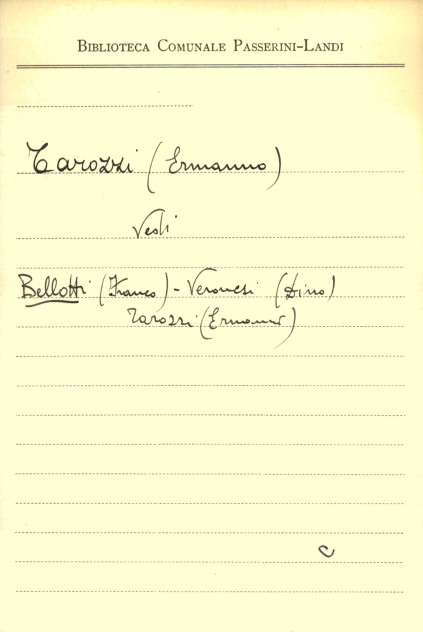 BIBLIOTECA COMUNALE PASSERINI-LANDI
Tarozzi (Ermanno)
Vedi
Bellotti (Franco) - Veronesi (Dino)
Tarozzi (Ermanno)
C